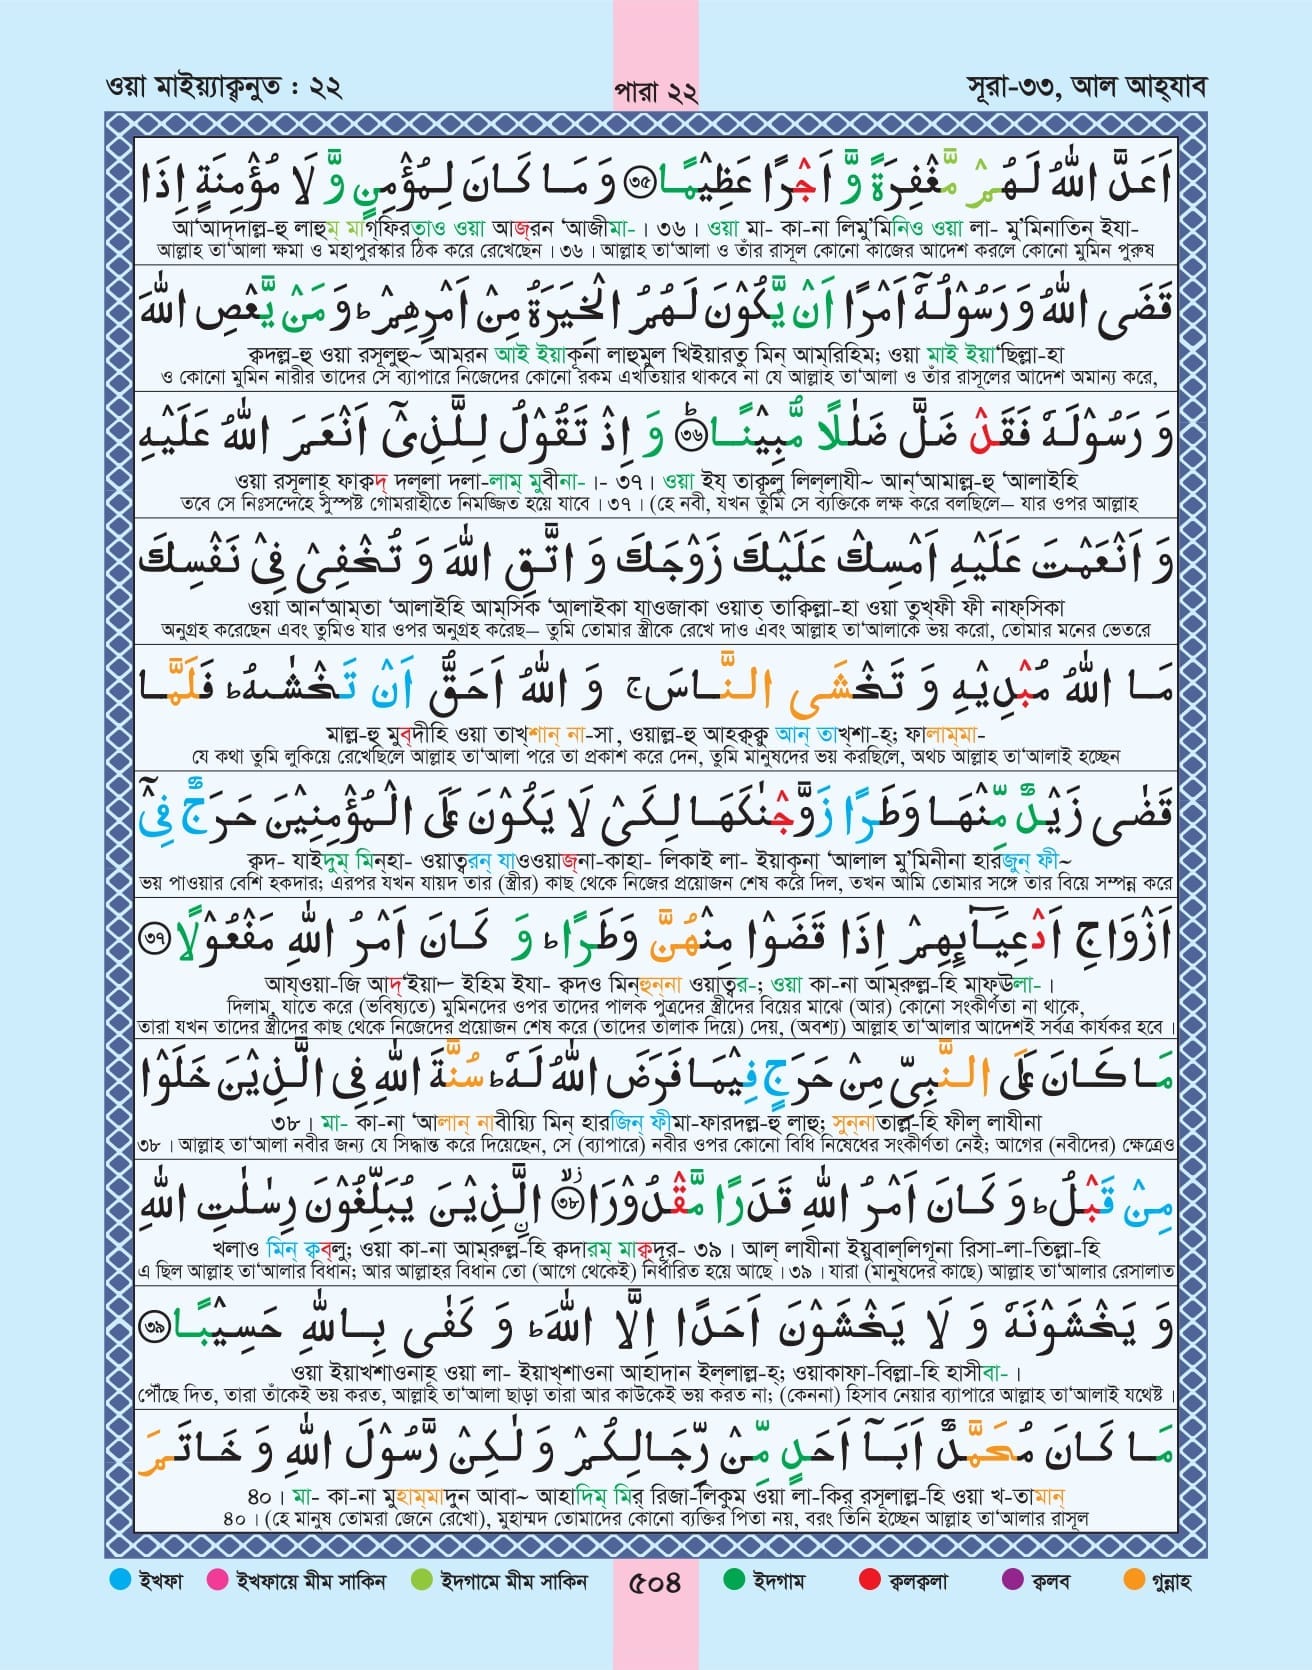 ওয়া মাইয়্যাক্বনুত : ২২
পারা ২২
সূরা-৩৩, আল আহ্‌যাব
اَعَدَّ اللّٰهُ لَهُمْ مَّغْفِرَةً وَّ اَجْرًا عَظِيْمًا ۝٣٥ وَ مَا كَانَ لِمُؤْمِنٍ وَّ لَا مُؤْمِنَةٍ اِذَا
আ'আদ্‌দাল্ল-হু লাহুম্‌ মাগ্‌ফিরতাও ওয়া আজ্‌রন 'আজীমা- । ৩৬ । ওয়া মা- কা-না লিমু'মিনিও ওয়া লা- মু'মিনাতিন্‌ ইযা-
আল্লাহ তা'আলা ক্ষমা ও মহাপুরস্কার ঠিক করে রেখেছেন । ৩৬ । আল্লাহ তা'আলা ও তাঁর রাসূল কোনো কাজের আদেশ করলে কোনো মুমিন পুরুষ
قَضَى اللّٰهُ وَ رَسُوْلُهٗۤ اَمْرًا اَنْ يَّكُوْنَ لَهُمُ الْخِيَرَةُ مِنْ اَمْرِهِمْ ؕ وَ مَنْ يَّعْصِ اللّٰهَ
ক্বদল্ল-হু ওয়া রসূলুহু~ আমরন আই ইয়াকূনা লাহুমুল খিইয়ারতু মিন্‌ আম্‌রিহিম; ওয়া মাই ইয়া'ছিল্লা-হা
ও কোনো মুমিন নারীর তাদের সে ব্যাপারে নিজেদের কোনো রকম এখতিয়ার থাকবে না যে আল্লাহ তা'আলা ও তাঁর রাসূলের আদেশ অমান্য করে,
وَ رَسُوْلَهٗ فَقَدْ ضَلَّ ضَلٰلًا مُّبِيْنًا ؕ۝٣٦ وَ اِذْ تَقُوْلُ لِلَّذِيْۤ اَنْعَمَ اللّٰهُ عَلَيْهِ
ওয়া রসূলাহূ ফাক্বদ্‌ দল্‌লা দলা-লাম্‌ মুবীনা- ।- ৩৭ । ওয়া ইয্‌ তাকূলু লিল্‌লাযী~ আন্‌'আমাল্ল-হু 'আলাইহি
তবে সে নিঃসন্দেহে সুস্পষ্ট গোমরাহীতে নিমজ্জিত হয়ে যাবে । ৩৭ । (হে নবী, যখন তুমি সে ব্যক্তিকে লক্ষ করে বলছিলে– যার ওপর আল্লাহ
وَ اَنْعَمْتَ عَلَيْهِ اَمْسِكْ عَلَيْكَ زَوْجَكَ وَ اتَّقِ اللّٰهَ وَ تُخْفِيْ فِيْ نَفْسِكَ
ওয়া আন'আম্‌তা 'আলাইহি আম্‌সিক 'আলাইকা যাওজাকা ওয়াত্‌ তাক্বিল্লা-হা ওয়া তুখ্‌ফী ফী নাফ্‌সিকা
অনুগ্রহ করেছেন এবং তুমিও যার ওপর অনুগ্রহ করেছ– তুমি তোমার স্ত্রীকে রেখে দাও এবং আল্লাহ তা'আলাকে ভয় করো, তোমার মনের ভেতরে
مَا اللّٰهُ مُبْدِيْهِ وَ تَخْشَى النَّاسَ ۚ وَ اللّٰهُ اَحَقُّ اَنْ تَخْشٰىهُ ؕ فَلَمَّا
মাল্ল-হু মুব্‌দীহি ওয়া তাখ্‌শান্‌ না-সা, ওয়াল্ল-হু আহক্ব্‌কু আন্‌ তাখ্‌শা-হ্‌; ফালাম্‌মা-
যে কথা তুমি লুকিয়ে রেখেছিলে আল্লাহ তা'আলা পরে তা প্রকাশ করে দেন, তুমি মানুষদের ভয় করছিলে, অথচ আল্লাহ তা'আলাই হচ্ছেন
قَضٰى زَيْدٌ مِّنْهَا وَطَرًا زَوَّجْنٰكَهَا لِكَيْ لَا يَكُوْنَ عَلَى الْمُؤْمِنِيْنَ حَرَجٌ فِيْۤ
ক্বদ- যাইদুম্‌ মিন্‌হা- ওয়াত্বরন্‌ যাওওয়াজ্‌না-কাহা- লিকাই লা- ইয়াকূনা 'আলাল মু'মিনীনা হারজুন্‌ ফী~
ভয় পাওয়ার বেশি হকদার; এরপর যখন যায়দ তার (স্ত্রীর) কাছ থেকে নিজের প্রয়োজন শেষ করে দিল, তখন আমি তোমার সঙ্গে তার বিয়ে সম্পন্ন করে
اَزْوَاجِ اَدْعِيَآىِٕهِمْ اِذَا قَضَوْا مِنْهُنَّ وَطَرًا ؕ وَ كَانَ اَمْرُ اللّٰهِ مَفْعُوْلًا ۝٣٧
আয্‌ওয়া-জি আদ্‌'ইয়া— ইহিম ইযা- ক্বদও মিন্‌হুন্‌না ওয়াত্বর-; ওয়া কা-না আম্‌রুল্ল-হি মাফ্‌'ঊলা- ।
দিলাম, যাতে করে (ভবিষ্যতে) মুমিনদের ওপর তাদের পালক পুত্রদের স্ত্রীদের বিয়ের মাঝে (আর) কোনো সংকীর্ণতা না থাকে,
তারা যখন তাদের স্ত্রীদের কাছ থেকে নিজেদের প্রয়োজন শেষ করে (তাদের তালাক দিয়ে) দেয়, (অবশ্য) আল্লাহ তা'আলার আদেশই সর্বত্র কার্যকর হবে ।
مَا كَانَ عَلَى النَّبِيِّ مِنْ حَرَجٍ فِيْمَا فَرَضَ اللّٰهُ لَهٗ ؕ سُنَّةَ اللّٰهِ فِى الَّذِيْنَ خَلَوْا
৩৮ । মা- কা-না 'আলান্‌ নাবীয়্যি মিন্‌ হারজিন্‌ ফীমা-ফারদল্ল-হু লাহু; সুন্‌নাতাল্ল-হি ফীল্‌ লাযীনা
৩৮ । আল্লাহ তা'আলা নবীর জন্য যে সিদ্ধান্ত করে দিয়েছেন, সে (ব্যাপারে) নবীর ওপর কোনো বিধি নিষেধের সংকীর্ণতা নেই; আগের (নবীদের) ক্ষেত্রেও
مِنْ قَبْلُ ؕ وَ كَانَ اَمْرُ اللّٰهِ قَدَرًا مَّقْدُوْرَا ۝٣٨ۙ الَّذِيْنَ يُبَلِّغُوْنَ رِسٰلٰتِ اللّٰهِ
খলাও মিন্‌ ক্বব্‌লু; ওয়া কা-না আম্‌রুল্ল-হি ক্বদারম্‌ মাক্বদূর- ৩৯ । আল্‌ লাযীনা ইয়ুবাল্‌লিগূনা রিসা-লা-তিল্লা-হি
এ ছিল আল্লাহ তা'আলার বিধান; আর আল্লাহর বিধান তো (আগে থেকেই) নির্ধারিত হয়ে আছে । ৩৯ । যারা (মানুষদের কাছে) আল্লাহ তা'আলার রেসালাত
وَ يَخْشَوْنَهٗ وَ لَا يَخْشَوْنَ اَحَدًا اِلَّا اللّٰهَ ؕ وَ كَفٰى بِاللّٰهِ حَسِيْبًا ۝٣٩
ওয়া ইয়াখশাওনাহূ ওয়া লা- ইয়াখ্‌শাওনা আহাদান ইল্‌লাল্ল-হ্‌; ওয়াকাফা-বিল্লা-হি হাসীবা- ।
পৌঁছে দিত, তারা তাঁকেই ভয় করত, আল্লাহ তা'আলা ছাড়া তারা আর কাউকেই ভয় করত না; (কেননা) হিসাব নেয়ার ব্যাপারে আল্লাহ তা'আলাই যথেষ্ট ।
مَا كَانَ مُحَمَّدٌ اَبَاۤ اَحَدٍ مِّنْ رِّجَالِكُمْ وَ لٰكِنْ رَّسُوْلَ اللّٰهِ وَ خَاتَمَ
৪০ । মা- কা-না মুহাম্‌মাদুন আবা~ আহাদিম্‌ মির্‌ রিজা-লিকুম ওয়া লা-কির্‌ রসূলাল্ল-হি ওয়া খ-তামান্‌
৪০ । (হে মানুষ তোমরা জেনে রেখো), মুহাম্মদ তোমাদের কোনো ব্যক্তির পিতা নয়, বরং তিনি হচ্ছেন আল্লাহ তা'আলার রাসূল
ইখফা
ইখফায়ে মীম সাকিন
ইদগামে মীম সাকিন
৫০৪
ইদগাম
ক্বলক্বলা
ক্বলব
গুন্নাহ